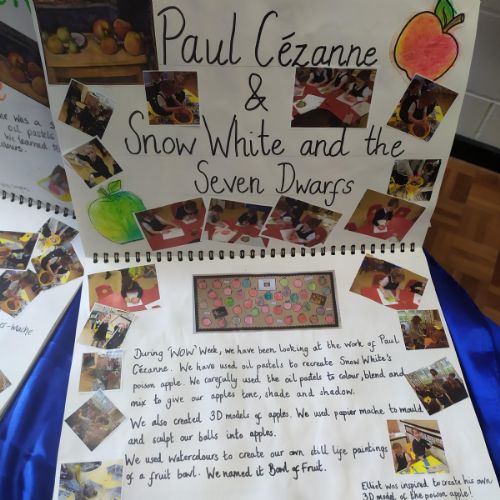 Paul Cézanne
&
Snow White and the
Seven Dwarfs
During 'WOW' Week, we have been looking at the work of Paul
Cézanne. We have used oil pastels to recreate Snow White's
poison apple. We carefully used the oil pastels to colour, blend and
mix to give our apples tone, shade and shadow.
We also created 3D models of apples. We used papier mache to mould
and sculpt our balls into apples.
We used watercolours to create our own still life paintings
of a fruit bowl. We named it Bowl of Fruit.
Elliot was inspired to create his own
3D model of the poison apple!
was a s
oil pastels
We learned
colours.
-mache